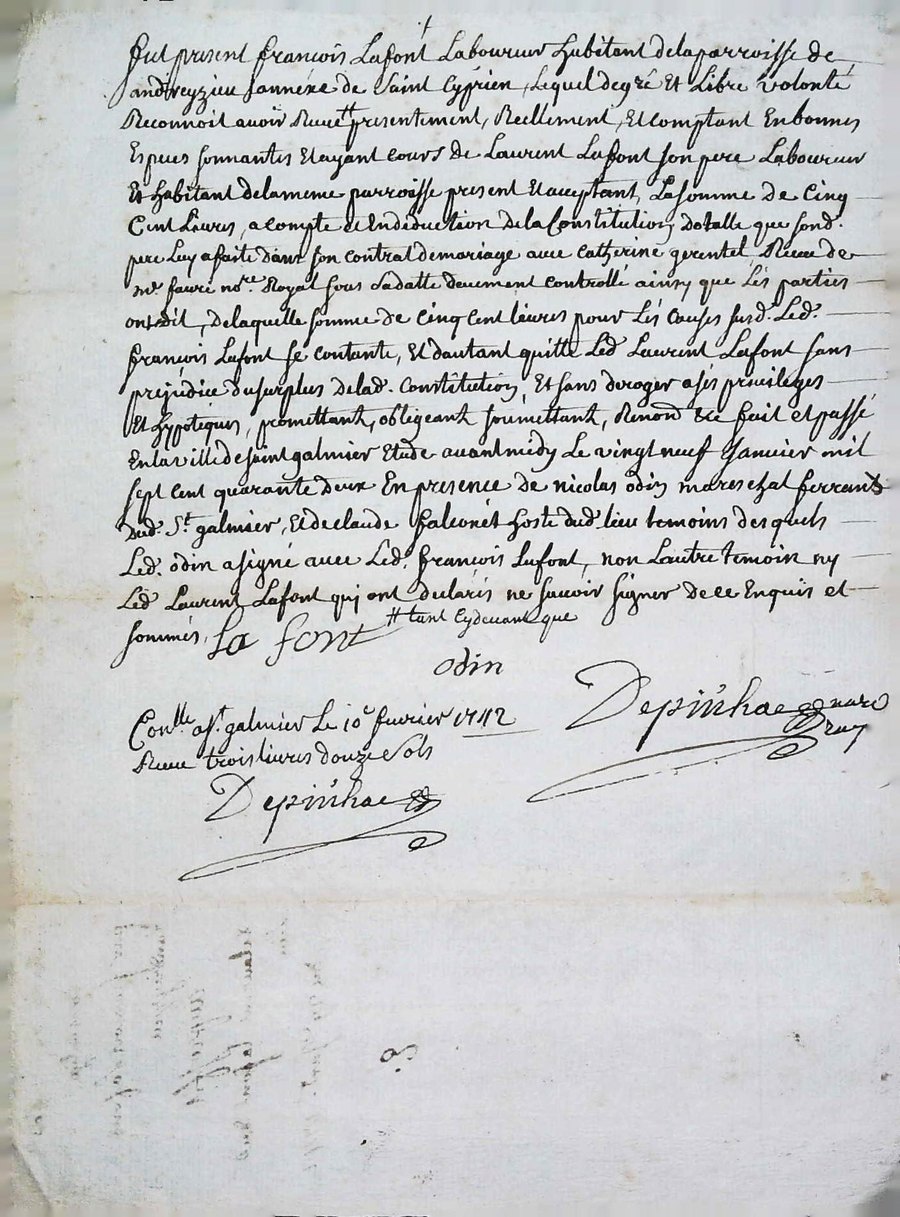 fut present françois Lafont Laboureur habitant dela parroisse de
andreyzieu Lannéxe de Saint Cyprien, Lequel degré Et Libre volonté
Reconnoit avoir Receu # presentement, Réellement, Et comptant En bonnes
Especes sonnantes Et ayant cours de Laurent Lafont son pere Laboureur
Et habitant dela meme parroisse present Et acceptant, La somme de Cinq
Cent Livres, a compte et En déduction dela Constitution Dotalle que sond.
pere Luy a faite dans son contrat de mariage avec Catherine gerentet, Receu de
me. faure nore. Royal sous sa datte deuement controllé ainsy que Lés parties
ont dit, de laquelle somme de Cinq cent livres pour Lés Causes susd. Led.
françois Lafont se contante, Et dautant quitte Led Laurent Lafont sans
préjudice du surplus delad. Constitution, Et sans déroger a sés privileges
Et hypotéques, promettant, obligeant soumettant, Renond &c fait et passé
En la ville de saint galmier Etude avant midy Le vingt neuf Janvier mil
sept cent quarante deux En presence de nicolas odin mareschal ferrant
dud. St. galmier, Et de claude falconét hoste dud. lieu temoins desquels
Led. odin a signé avec Led. françois Lafont, non Lautre temoin ny
Led Laurent Lafont qui ont déclarés ne sçavoir signer de ce Enquis et
sommés, # tant cy devant que
La font
odin
Depinhac nore
Royl
Conlle a St. galmier Le 10e fevrier 1742
Receu trois livres douze Sols
Depinhac